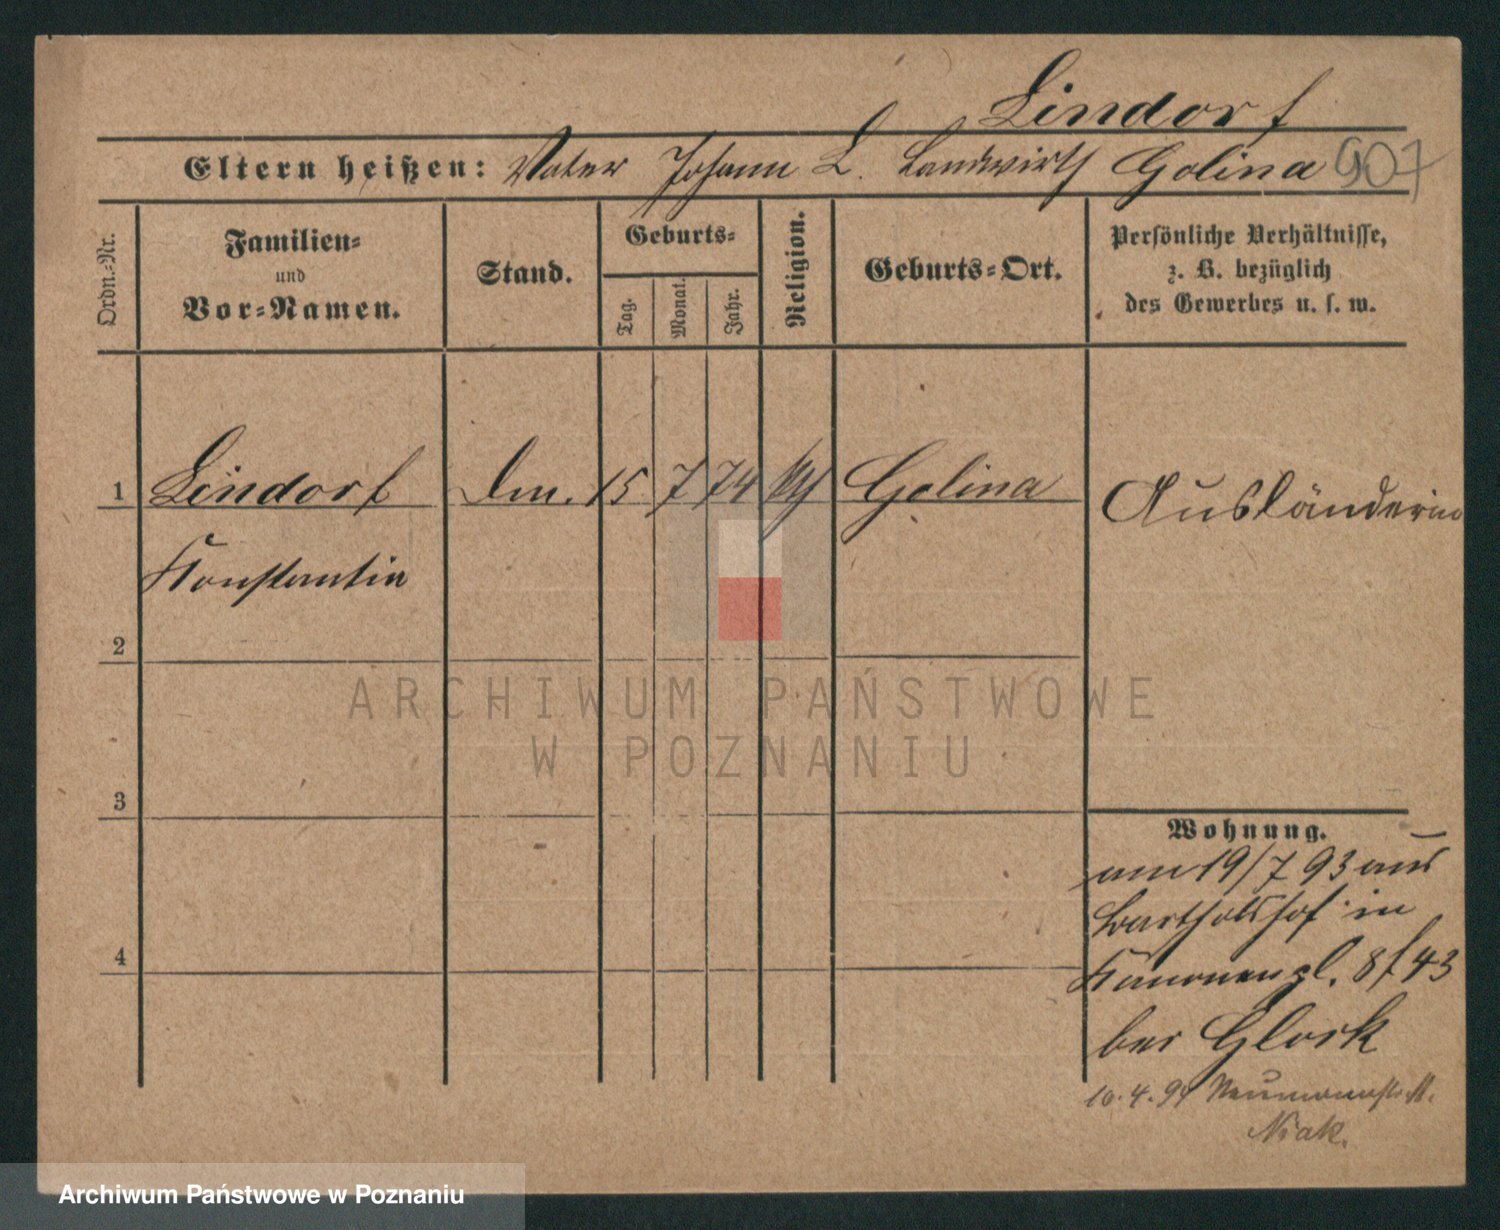 Lindorf
Eltern heißen: Vater Johann L. Landwirth Golina 907
Ordn.-Nr.
Familien-
und
Vor-Namen.
Stand.
Geburts-
Tag.
Monat.
Jahr.
Religion.
Geburts-Ort.
Persönliche Verhältnisse,
z. B. bezüglich
des Gewerbes u. s. w.
1 Lindorf 15 7 74 Golina Ausländerin
Konstantia
2
ARCHIWUM PAŃSTWOWE
W POZNANIU
3
Wohnung.
am 19/7 93 aus
Bartholdshof in
Kanonenpl. 8 f 43
bei Glork
4
10.4.94
Archiwum Państwowe w Poznaniu